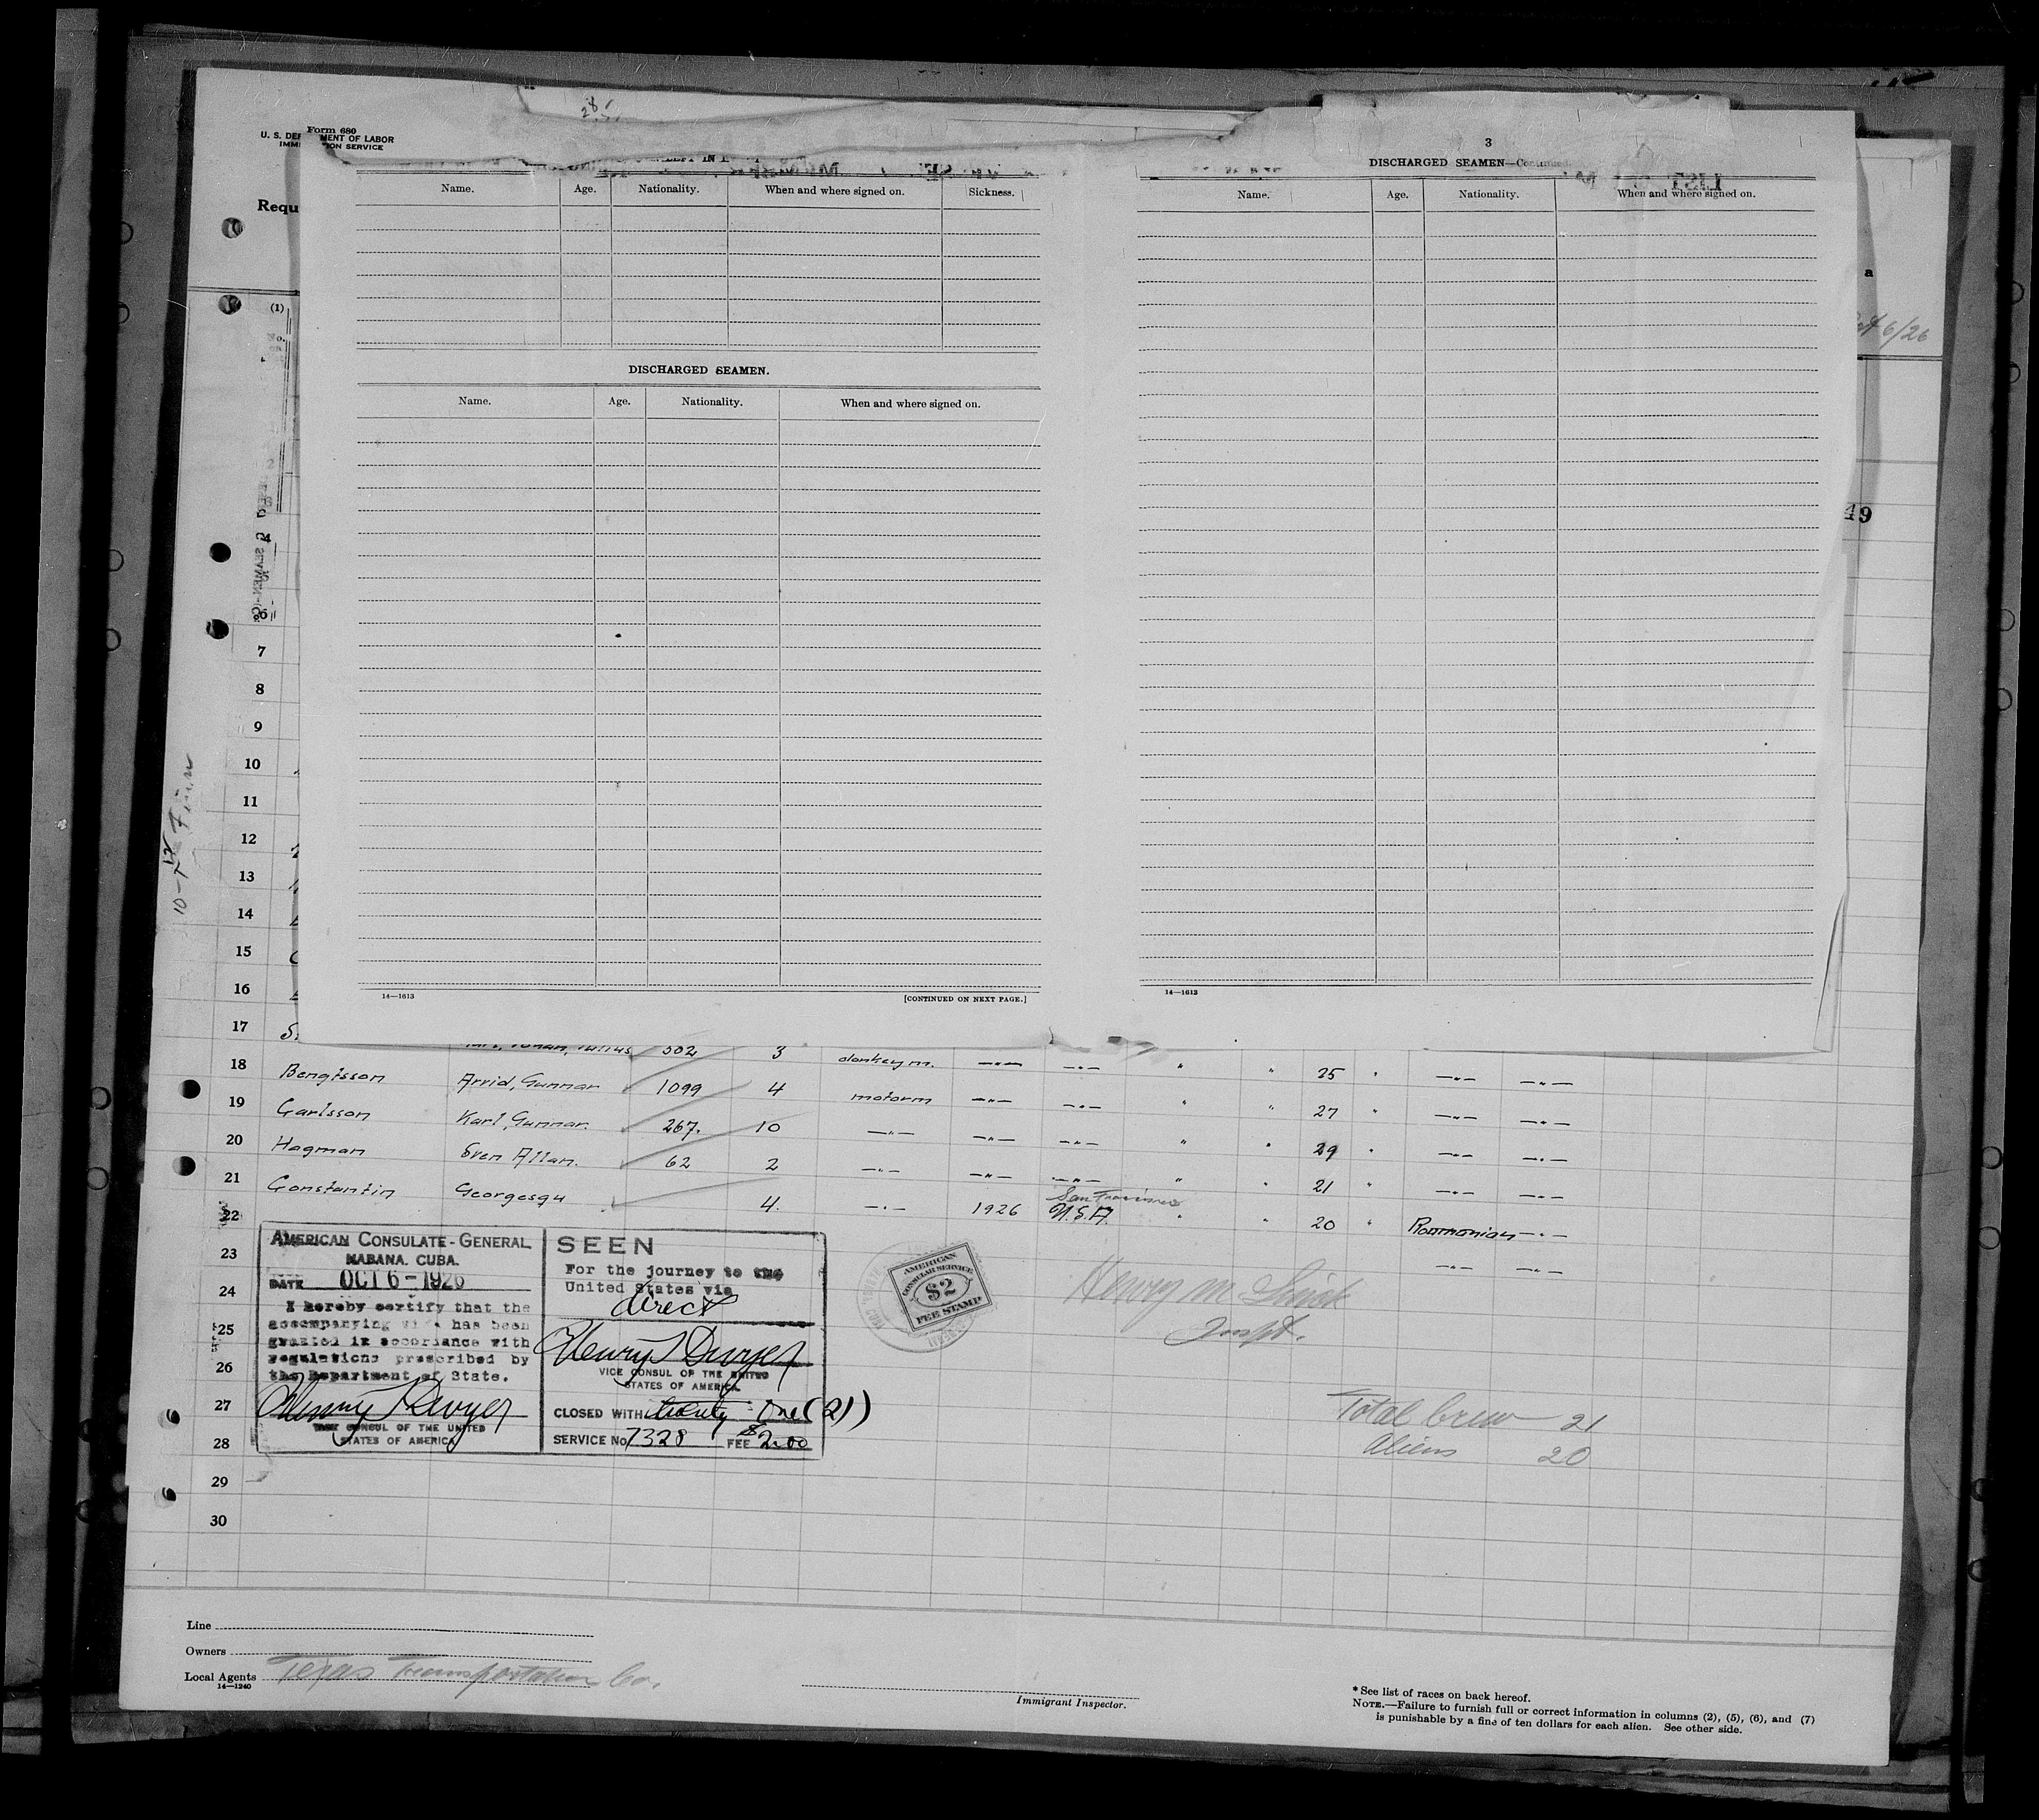 Form 680
U. S. DEP MENT OF LABOR
IMMI ION SERVICE
Requ
(1)
28
Name. Age. Nationality. When and where signed on. Sickness.
DISCHARGED SEAMEN.
Name. Age. Nationality. When and where signed on.
14—1613 [CONTINUED ON NEXT PAGE.]
3
DISCHARGED SEAMEN—Continued.
Name. Age. Nationality. When and where signed on.
14—1613
a
6/26
49
4
6
7
8
9
10
11
12
13
14
15
16
17
502 3 donkeym. —"— —"— " " 25 " —"— —"—
18 Bengtsson Arvid, Gunnar 1099 4 motorm —"— —"— " " 27 " —"— —"—
19 Carlsson Karl, Gunnar. 267. 10 —"— —"— —"— " " 29 " —"— —"—
20 Hagman Sven Allan. 62 2 —"— —"— —"— " " 21 " —"— —"—
21 Constantin Georgesqu 4. —"— 1926 San Francisco U.S.A. " " 20 " Roumanian —"—
22 —"— —"—
23
24
25
26
27
28
29
30
AMERICAN CONSULATE-GENERAL
HABANA. CUBA.
DATE OCT 6-1926
I hereby certify that the
accompanying visa has been
granted in accordance with
regulations prescribed by
the Department of State.
Henry T Dwyer
VICE CONSUL OF THE UNITED
STATES OF AMERICA
SEEN
For the journey to the
United States via
direct
Henry T Dwyer
VICE CONSUL OF THE UNITED
STATES OF AMERICA
CLOSED WITH twenty One (21)
SERVICE No 7328 FEE $2.00
AMERICAN
CONSULAR SERVICE
$2
FEE STAMP
Henry M
Inspt.
Total Crew 21
Aliens 20
Line
Owners
Local Agents Texas Transportation Co.
14—1240
Immigrant Inspector.
* See list of races on back hereof.
NOTE.—Failure to furnish full or correct information in columns (2), (5), (6), and (7)
is punishable by a fine of ten dollars for each alien. See other side.